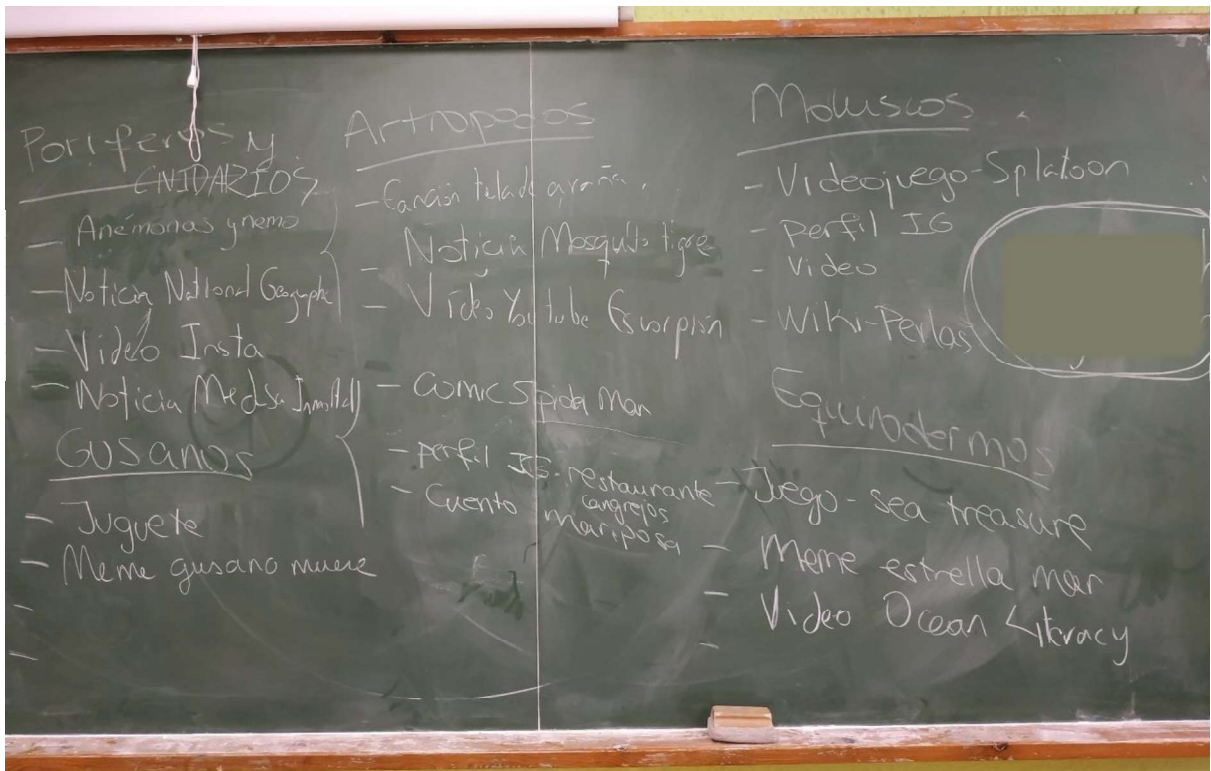 Poriferos y
CNIDARIOS
- Anémonas y nemo
- Noticia National Geographic
- Video Insta
- Noticia Medusa Inmortal
Gusanos
- Juguete
- Meme gusano muere
-
-
Artropodos
- Canción tela de araña
- Noticia Mosquito tigre
- Vídeo Youtube Escorpión
- Comic Spider Man
- Perfil IG. restaurante
cangrejos
- Cuento mariposa
Moluscos
- Videojuego-Splatoon
- Perfil IG
- Video
- Wiki-Perlas
Equinodermos
- Juego - sea treasure
- Meme estrella mar
- Video Ocean Literacy
-